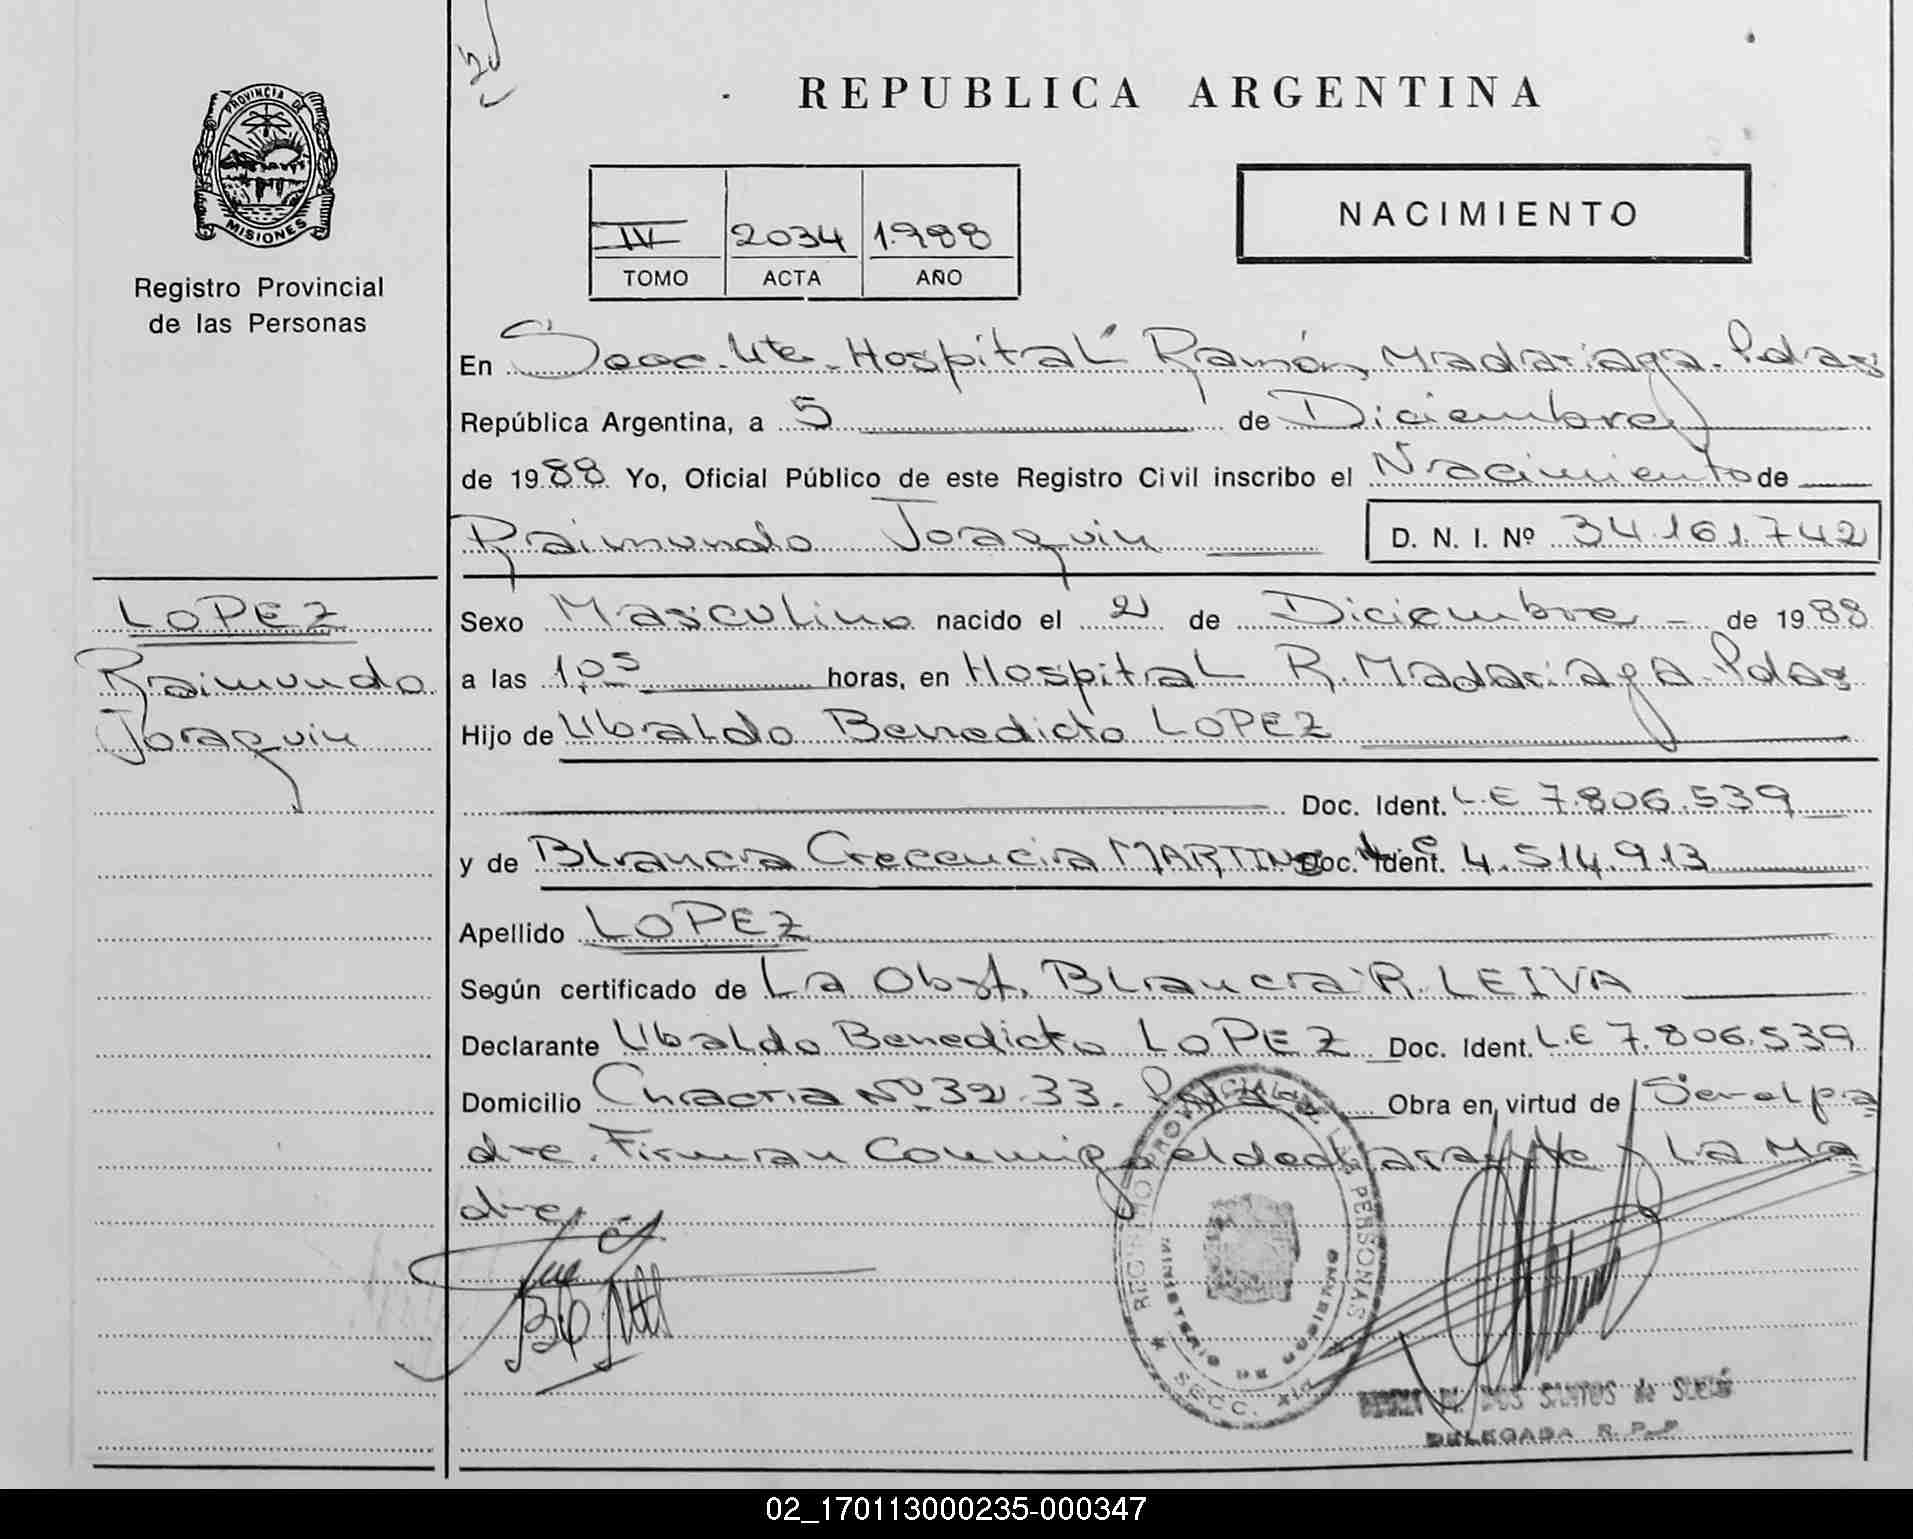 REPUBLICA ARGENTINA
PROVINCIA DE
MISIONES
Registro Provincial
de las Personas
IV 2034 1.988
TOMO ACTA AÑO
NACIMIENTO
En Secc. 4ta. Hospital Ramón Madariaga. Pdas
República Argentina, a 5 de Diciembre
de 1988 Yo, Oficial Público de este Registro Civil inscribo el Nacimiento de
Raimundo Joaquin D. N. I. Nº 34.161.742
LOPEZ
Raimundo
Joaquin
Sexo Masculino nacido el 2 de Diciembre - de 1988
a las 1,05 horas, en Hospital R. Madariaga. Pdas
Hijo de Ubaldo Benedicto LOPEZ
Doc. Ident. L.E 7.806.539
y de Blanca Crecencia MARTINS Doc. Ident. 4.514.913
Apellido LOPEZ
Según certificado de La Obst. Blanca R. LEIVA
Declarante Ubaldo Benedicto LOPEZ Doc. Ident. L.E 7.806.539
Domicilio Chacra Nº 32-33. Pdas Obra en virtud de Ser el pa
dre. Firman Conmigo el declarante y La Ma
dre
REGISTRO PROVINCIAL DE LAS PERSONAS
MINISTERIO DE GOBIERNO
SECC.
DOS SANTOS de
DELEGADA R. P. P
02_170113000235-000347